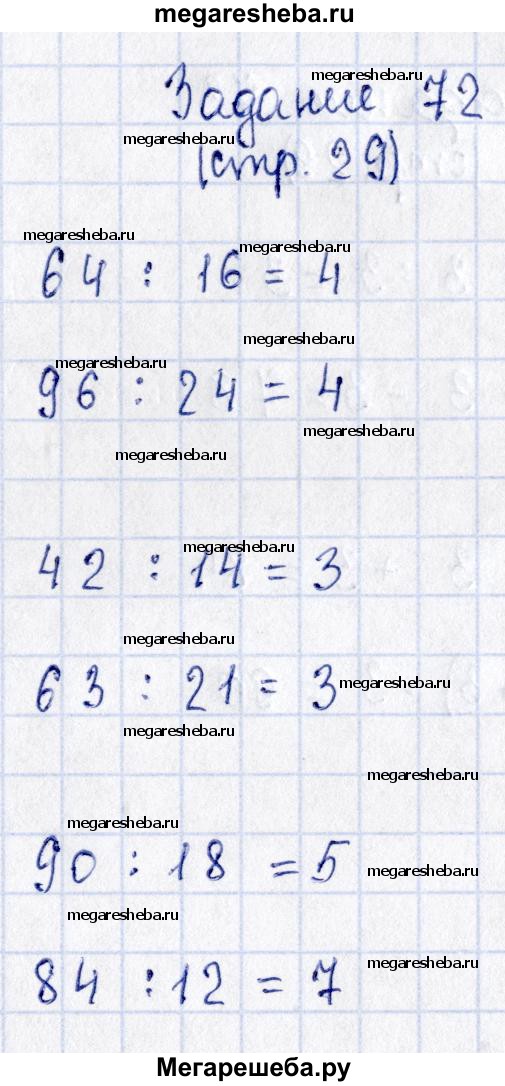 megaresheba.ru
megaresheba.ru
Задание 72
megaresheba.ru
(стр. 29)
megaresheba.ru
megaresheba.ru
64 : 16 = 4
megaresheba.ru
megaresheba.ru
96 : 24 = 4
megaresheba.ru
megaresheba.ru
megaresheba.ru
42 : 14 = 3
megaresheba.ru
63 : 21 = 3
megaresheba.ru
megaresheba.ru
megaresheba.ru
megaresheba.ru
90 : 18 = 5
megaresheba.ru
megaresheba.ru
megaresheba.ru
84 : 12 = 7
Мегарешеба.ру